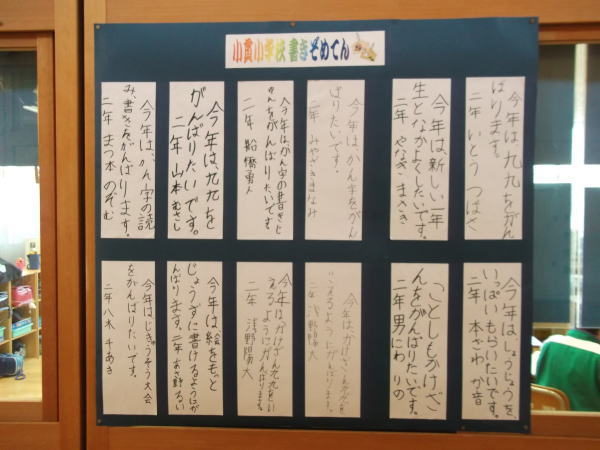 小貫小学校 書きぞめてん
今年は、九九をがん
ばります。
二年 いとう つばさ
今年は、新しい一年
生となかよくしたいです。
二年 やなぎ まさき
今年は、かん字をがん
ばりたいです。
二年 みやざきまなみ
今年は、かん字の書きと
りをがんばりたいです。
二年 船橋勇人
今年は、九九を
がんばりたいです。
二年 山本 むさし
今年は、かん字の読
み、書きをがんばります。
二年 まつ本 のぞむ
今年はしょうじょうを、
いっぱいもらいたいです。
二年 本ざわ か音
ことしもかけざ
んをがんばりたいです。
二年 男にわ りの
今年は、かけざん九九を
いえるようにがんばります。
二年 浅野陽大
今年は、かけざん九九をい
えるようにがんばります。
二年 浅野陽大
今年は絵をもっと
じょうずに書けるようにが
んばります。二年 あさ野るい
今年はじきゅうそう大会
をがんばりたいです。
二年 八木 千あき